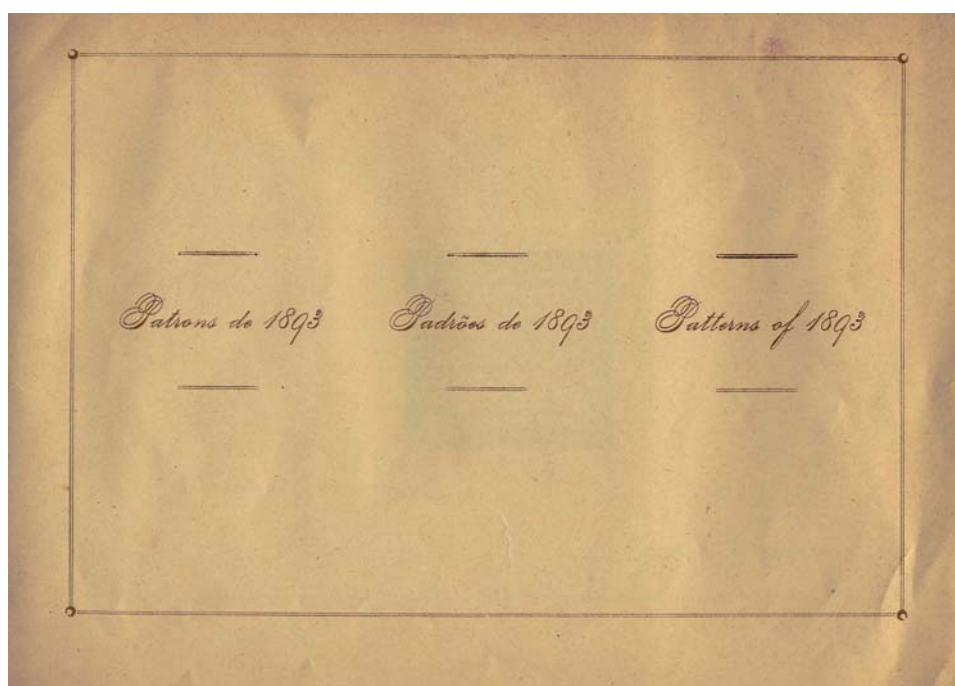 Patrons de 1893
Padrões de 1893
Patterns of 1893